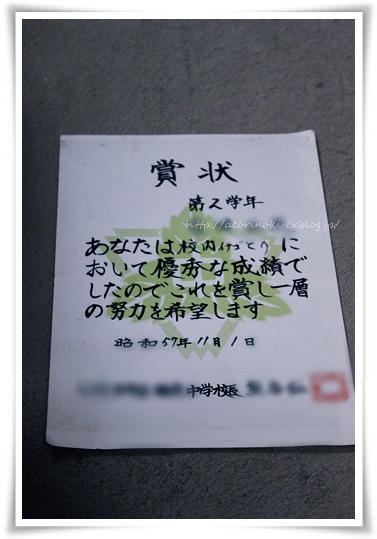 賞状
第2学年
http://acorinoki.exblog.jp/
あなたは校内付ごとりに
おいて優秀な成績で
したのでこれを賞し一層
の努力を希望します
昭和57年11月1日
中学校長